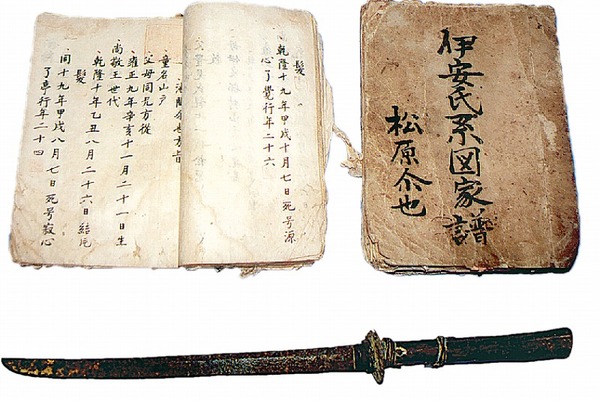 伊安氏系図家譜
松原介也
髪
、乾隆十九年甲戌十月七日死号源
心了覺行年二十六
童名山戸
父母同見方從
、雍正九年辛亥十一月二十一日生
尚敬王世代
、乾隆十年乙丑八月二十六日結
髪
、同十九年甲戌八月七日死号
了専行年二十四